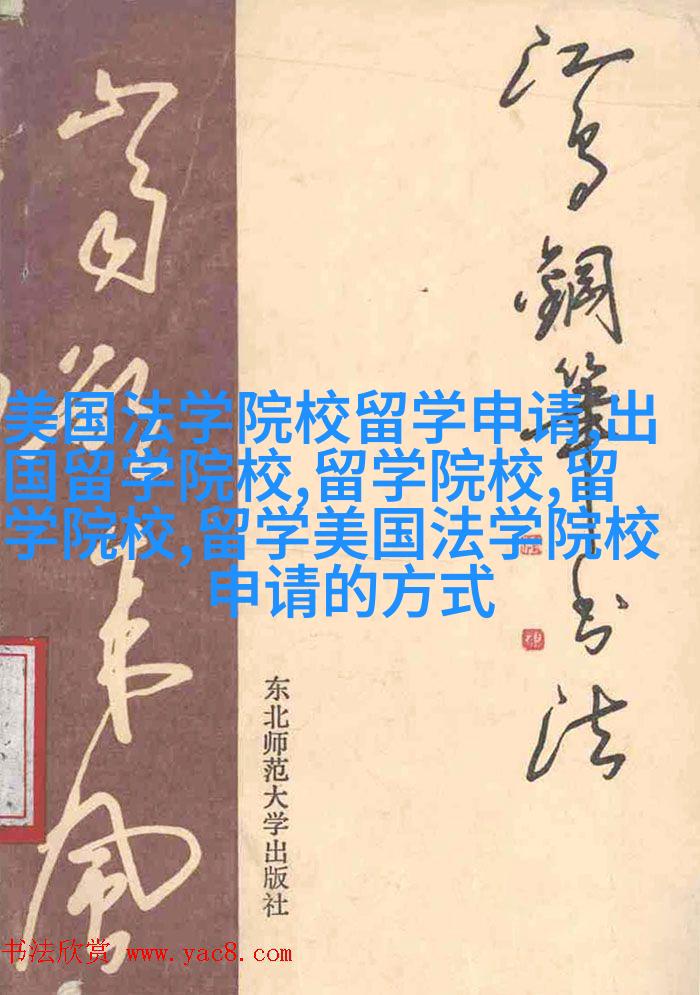 江鸟鋼筆书法
美国法学院校留学申请,出
国留学院校,留学院校,留
学院校,留学美国法学院校
申请的方式
东北师范大学出版社
书法欣赏 www.yac8.com